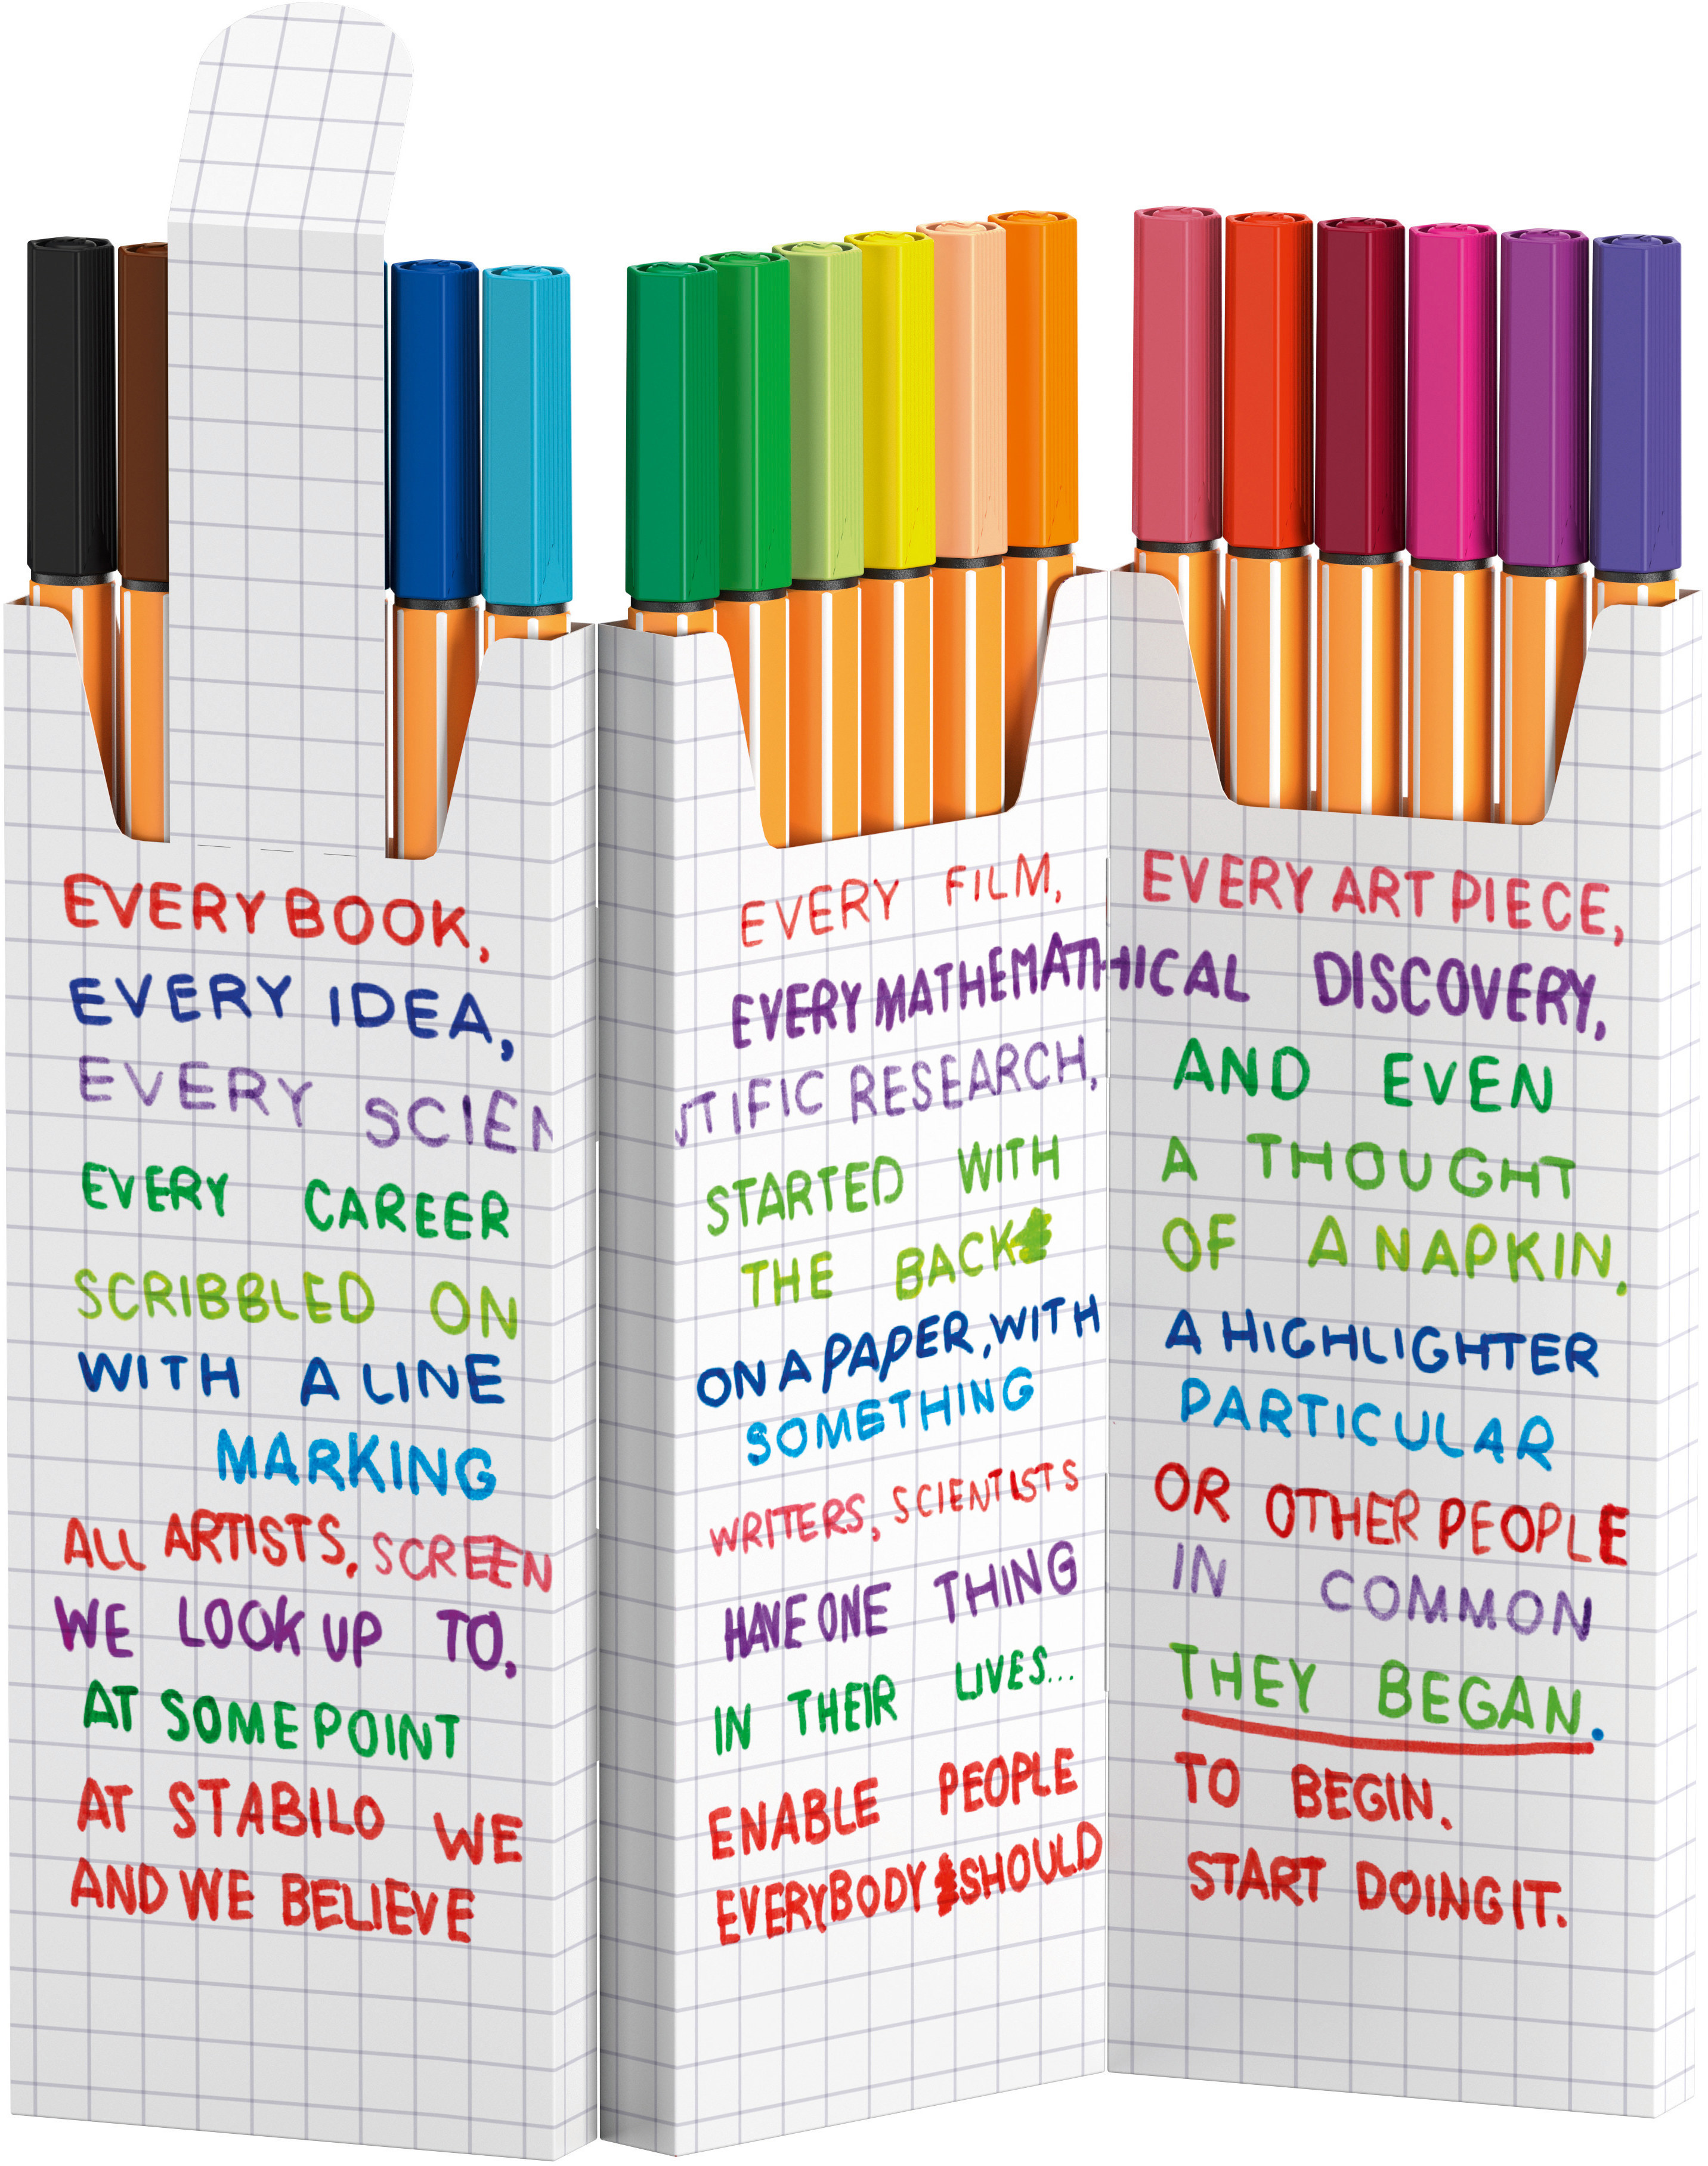 EVERY BOOK, EVERY FILM, EVERY ART PIECE,
EVERY IDEA, EVERY MATHEMATHICAL DISCOVERY,
EVERY SCIENTIFIC RESEARCH, AND EVEN
EVERY CAREER STARTED WITH A THOUGHT
SCRIBBLED ON THE BACK OF A NAPKIN,
WITH A LINE ON A PAPER, WITH A HIGHLIGHTER
MARKING SOMETHING PARTICULAR
ALL ARTISTS, SCREENWRITERS, SCIENTISTS OR OTHER PEOPLE
WE LOOK UP TO, HAVE ONE THING IN COMMON
AT SOME POINT IN THEIR LIVES... THEY BEGAN.
AT STABILO WE ENABLE PEOPLE TO BEGIN,
AND WE BELIEVE EVERYBODY SHOULD START DOING IT.